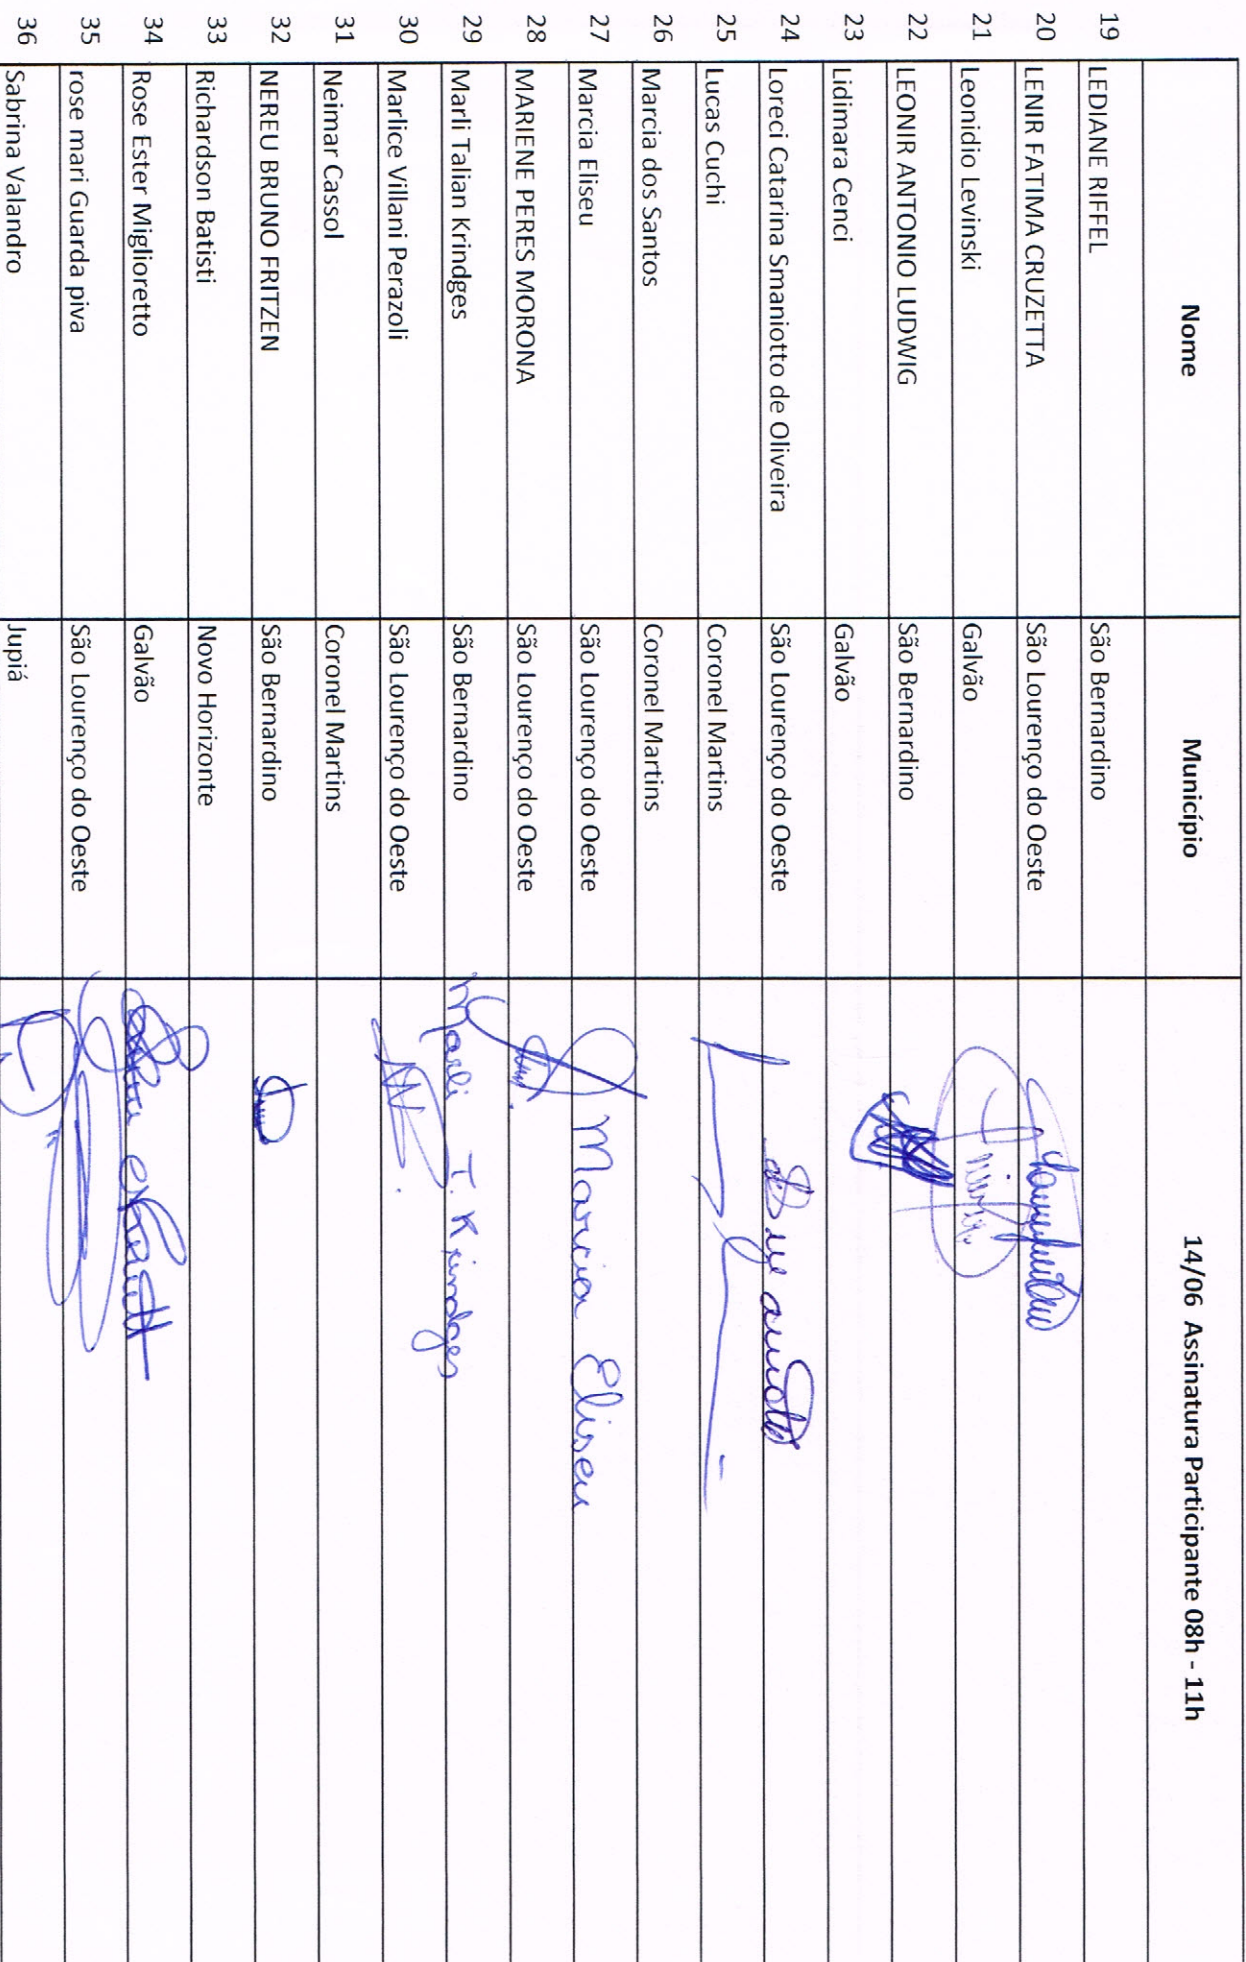 Nome Município 14/06 Assinatura Participante 08h - 11h
19 LEDIANE RIFFEL São Bernardino
20 LENIR FATIMA CRUZETTA São Lourenço do Oeste
21 Leonidio Levinski Galvão
22 LEONIR ANTONIO LUDWIG São Bernardino
23 Lidimara Cenci Galvão
24 Loreci Catarina Smaniotto de Oliveira São Lourenço do Oeste
25 Lucas Cuchi Coronel Martins
26 Marcia dos Santos Coronel Martins
27 Marcia Eliseu São Lourenço do Oeste Marcia Eliseu
28 MARIENE PERES MORONA São Lourenço do Oeste
29 Marli Talian Krindges São Bernardino Marli T. Krindges
30 Marlice Villani Perazoli São Lourenço do Oeste
31 Neimar Cassol Coronel Martins
32 NEREU BRUNO FRITZEN São Bernardino
33 Richardson Batisti Novo Horizonte
34 Rose Ester Miglioretto Galvão
35 rose mari Guarda piva São Lourenço do Oeste
36 Sabrina Valandro Jupiá